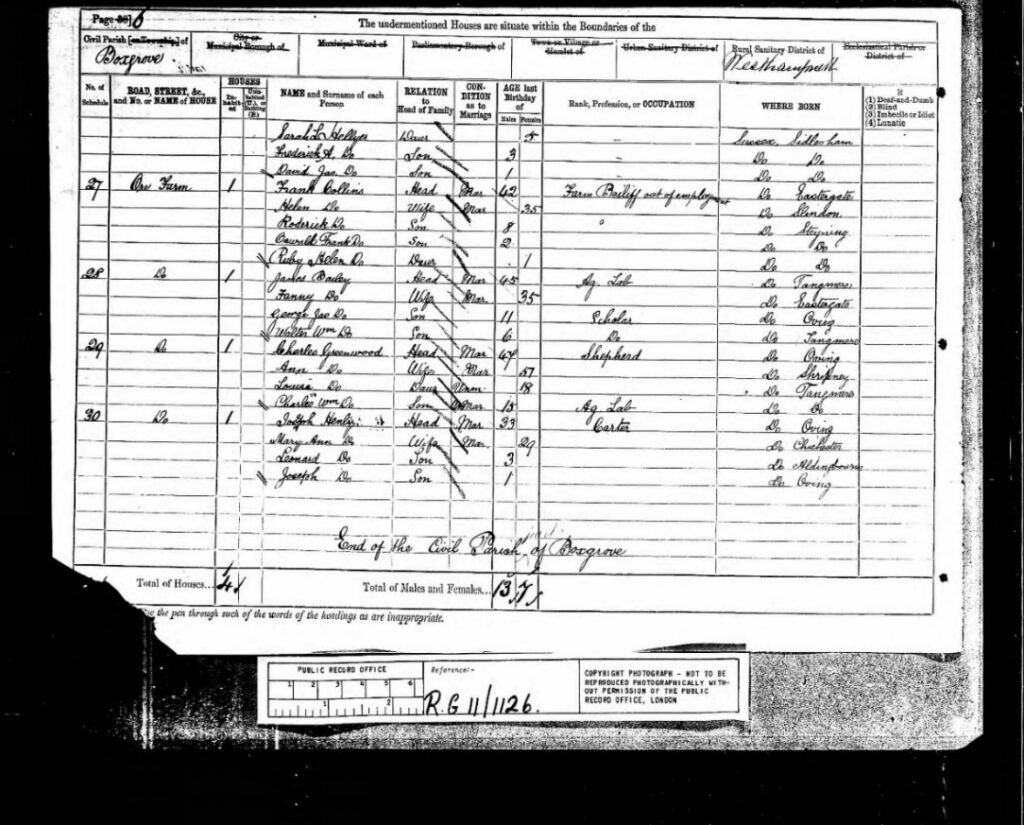 Page 36] 6
The undermentioned Houses are situate within the Boundaries of the
Civil Parish [or Township] of
Boxgrove
City or Municipal Borough of
Municipal Ward of
Parliamentary Borough of
Town or Village or Hamlet of
Urban Sanitary District of
Rural Sanitary District of
Westhampnett
Ecclesiastical Parish or District of
No. of Schedule
ROAD, STREET, &c., and No. or NAME of HOUSE
HOUSES
Inhabited
Uninhabited (U.), or Building (B.)
NAME and Surname of each Person
RELATION to Head of Family
CONDITION as to Marriage
AGE last Birthday of
Males
Females
Rank, Profession, or OCCUPATION
WHERE BORN
If
(1) Deaf-and-Dumb
(2) Blind
(3) Imbecile or Idiot
(4) Lunatic
Sarah L. Hellyer Daur 5 - Sussex, Sidlesham
Frederick A. Do Son 3 - Do Do
David Jas. Do Son 1 - Do Do
27 Farm 1 Frank Collins Head Mar 42 Farm Bailiff out of employment Do Eastergate
Helen Do Wife Mar 35 Do Slindon
Roderick Do Son 8 " Do Steyning
Oswald Frank Do Son 2 Do Do
Ruby Helen Do Daur 1 Do Do
28 Do 1 James Bailey Head Mar 45 Ag. Lab Do Tangmere
Fanny Do Wife Mar 35 Do Eastergate
George Jas Do Son 11 Scholar Do Oving
Walter Wm Do Son 6 Do Do Tangmere
29 Do 1 Charles Greenwood Head Mar 47 Shepherd Do Oving
Ann Do Wife Mar 57 Do Shripney
Louisa Do Daur Unm 18 Do Tangmere
Charles Wm Do Son 15 Ag Lab Do Do
30 Do 1 Joseph Head Mar 33 Carter Do Oving
Mary Ann Do Wife Mar 29 Do Chichester
Leonard Do Son 3 Do Aldingbourne
Joseph Do Son 1 Do Oving
End of the Civil Parish of Boxgrove
Total of Houses... 4
Total of Males and Females... 13 7
the pen through such of the words of the headings as are inappropriate.
PUBLIC RECORD OFFICE
1 2 3 4 5 6
1 2
Reference:-
R.G 11/1126.
COPYRIGHT PHOTOGRAPH - NOT TO BE REPRODUCED PHOTOGRAPHICALLY WITHOUT PERMISSION OF THE PUBLIC RECORD OFFICE, LONDON